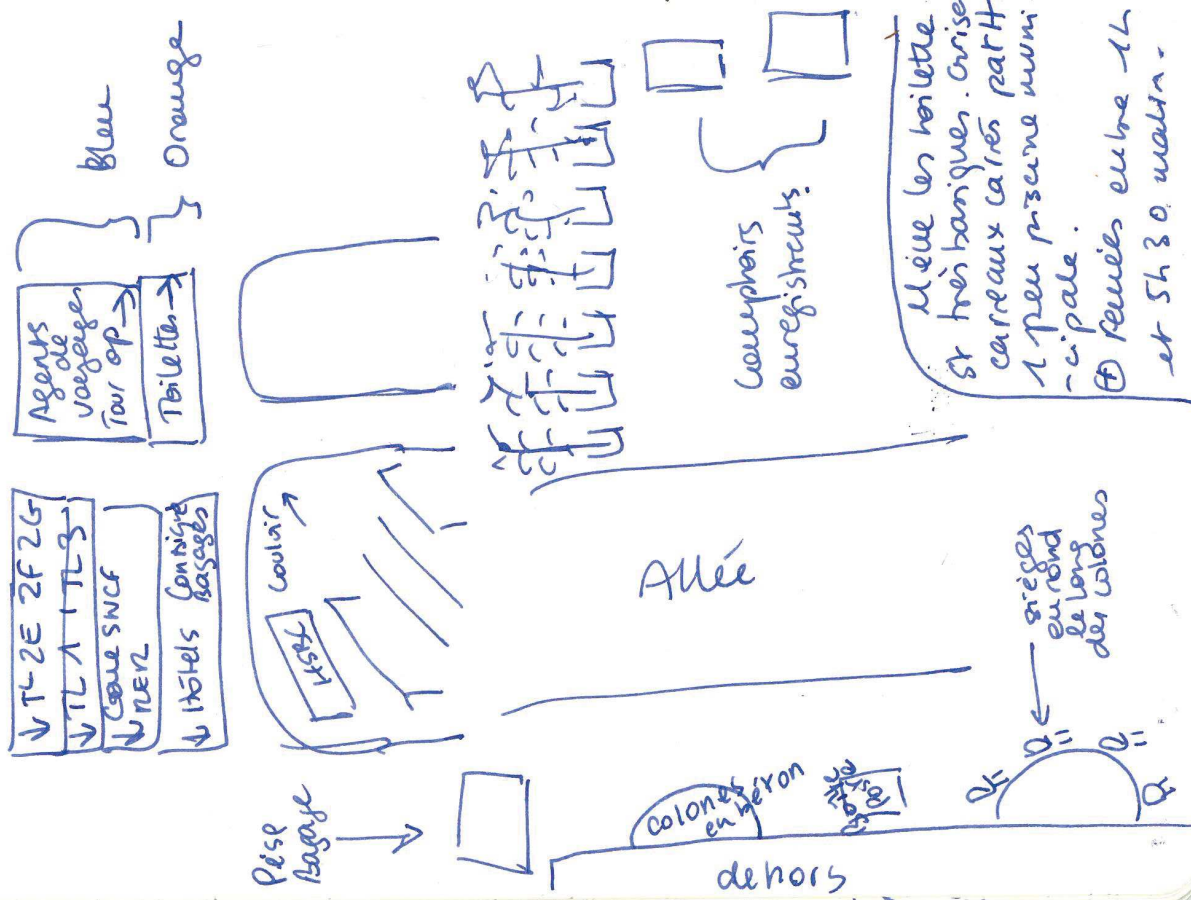 ↓ TL 2E 2F 2G
↓ TL 1 TL3
↓ Gare SNCF
RER
↓ Hôtels Consigne
Bagages
Agents
de
voyages
Tour op →
Toilettes →
Bleu
Orange
Couloir
HSBC
Pèse
Bagage
Allée
Comptoirs
enregistrements.
colones
en béron
dehors
sièges
en rond
le long
des colones
Même les toilette
st très basiques. Grise
carreaux carrés patH
1 peu piscine muni
-cipale.
⊕ Fermées entre 1h
et 5h30 matin.